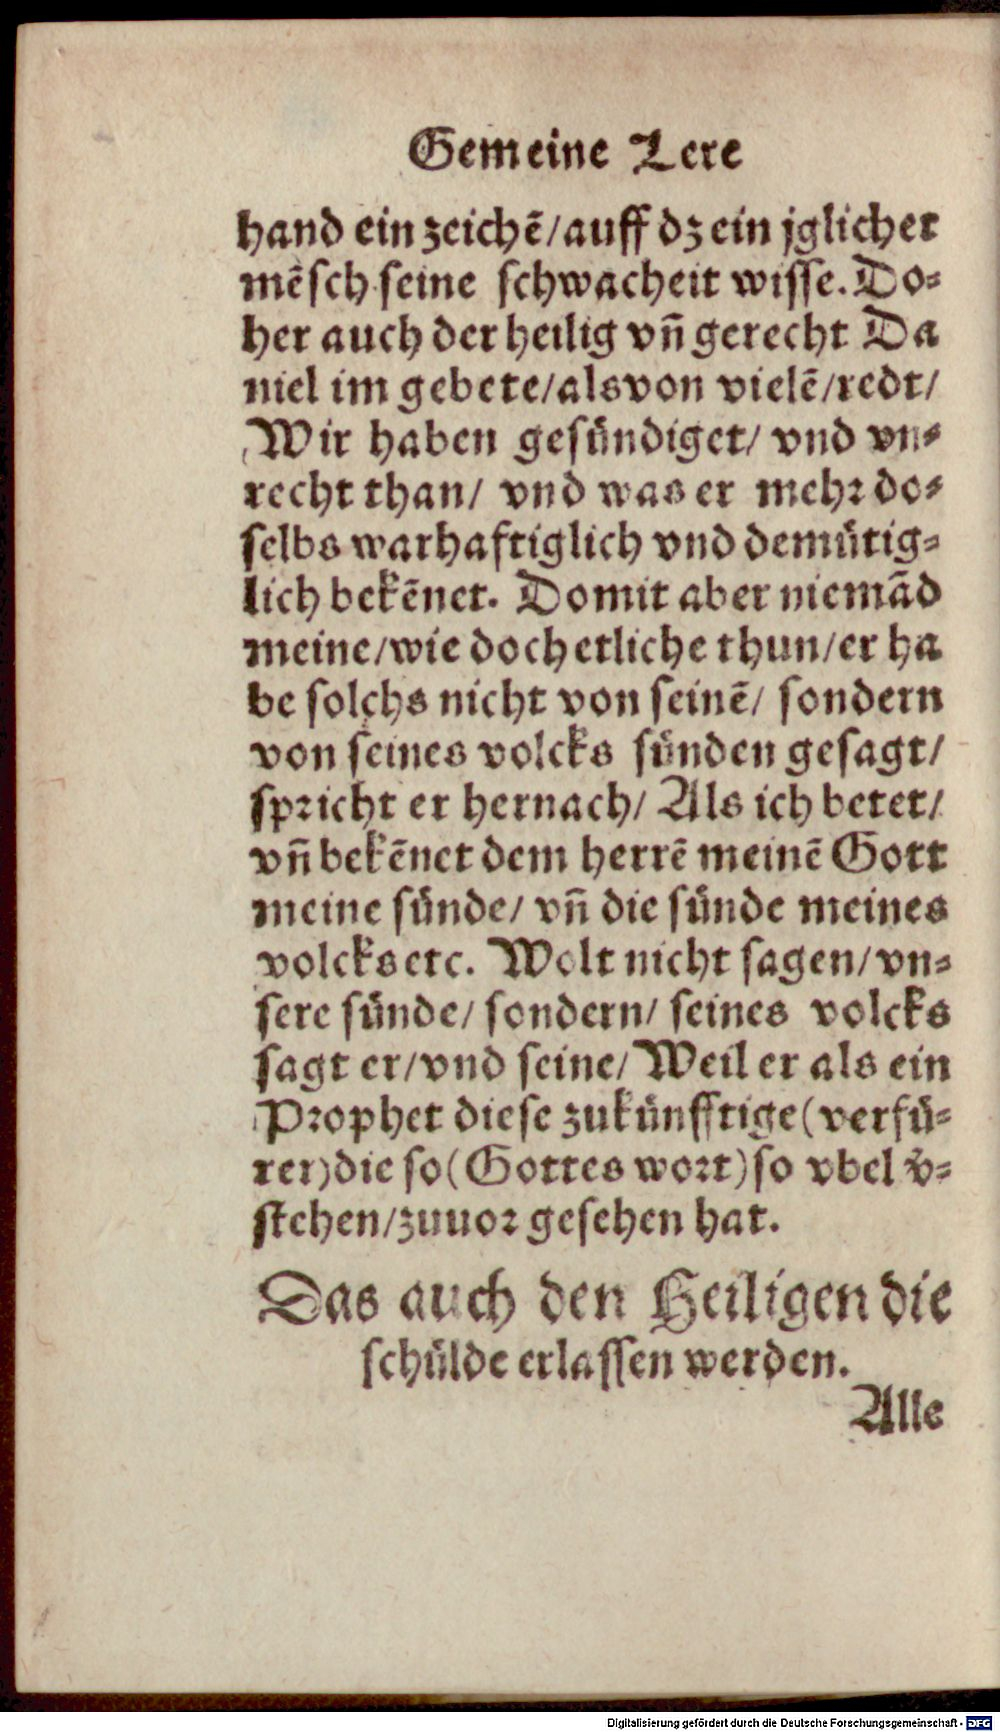 Gemeine Lere
hand ein zeichẽ/auff dz ein jglicher
mẽsch seine schwacheit wisse. Do-
her auch der heilig vñ gerecht Da
niel im gebete/als von vielẽ/redt/
Wir haben gesündiget/ vnd vn-
recht than/ vnd was er mehr do-
selbs warhafftiglich vnd demütig-
lich bekẽnet. Domit aber niemãd
meine/wie doch etliche thun/er ha
be solchs nicht von seinẽ/ sondern
von seines volcks sünden gesagt/
spricht er hernach/ Als ich betet/
vñ bekẽnet dem herrẽ meinẽ Gott
meine sünde/ vñ die sünde meines
volcks etc. Wolt nicht sagen/vn-
sere sünde/ sondern/ seines volcks
sagt er/vnd seine/ Weil er als ein
Prophet diese zukünfftige(verfü-
rer)die so(Gottes wort)so vbel v̈-
stehen/zuuor gesehen hat.
Das auch den Heiligen die
schülde erlassen werden.
Alle
Digitalisierung gefördert durch die Deutsche Forschungsgemeinschaft - DFG